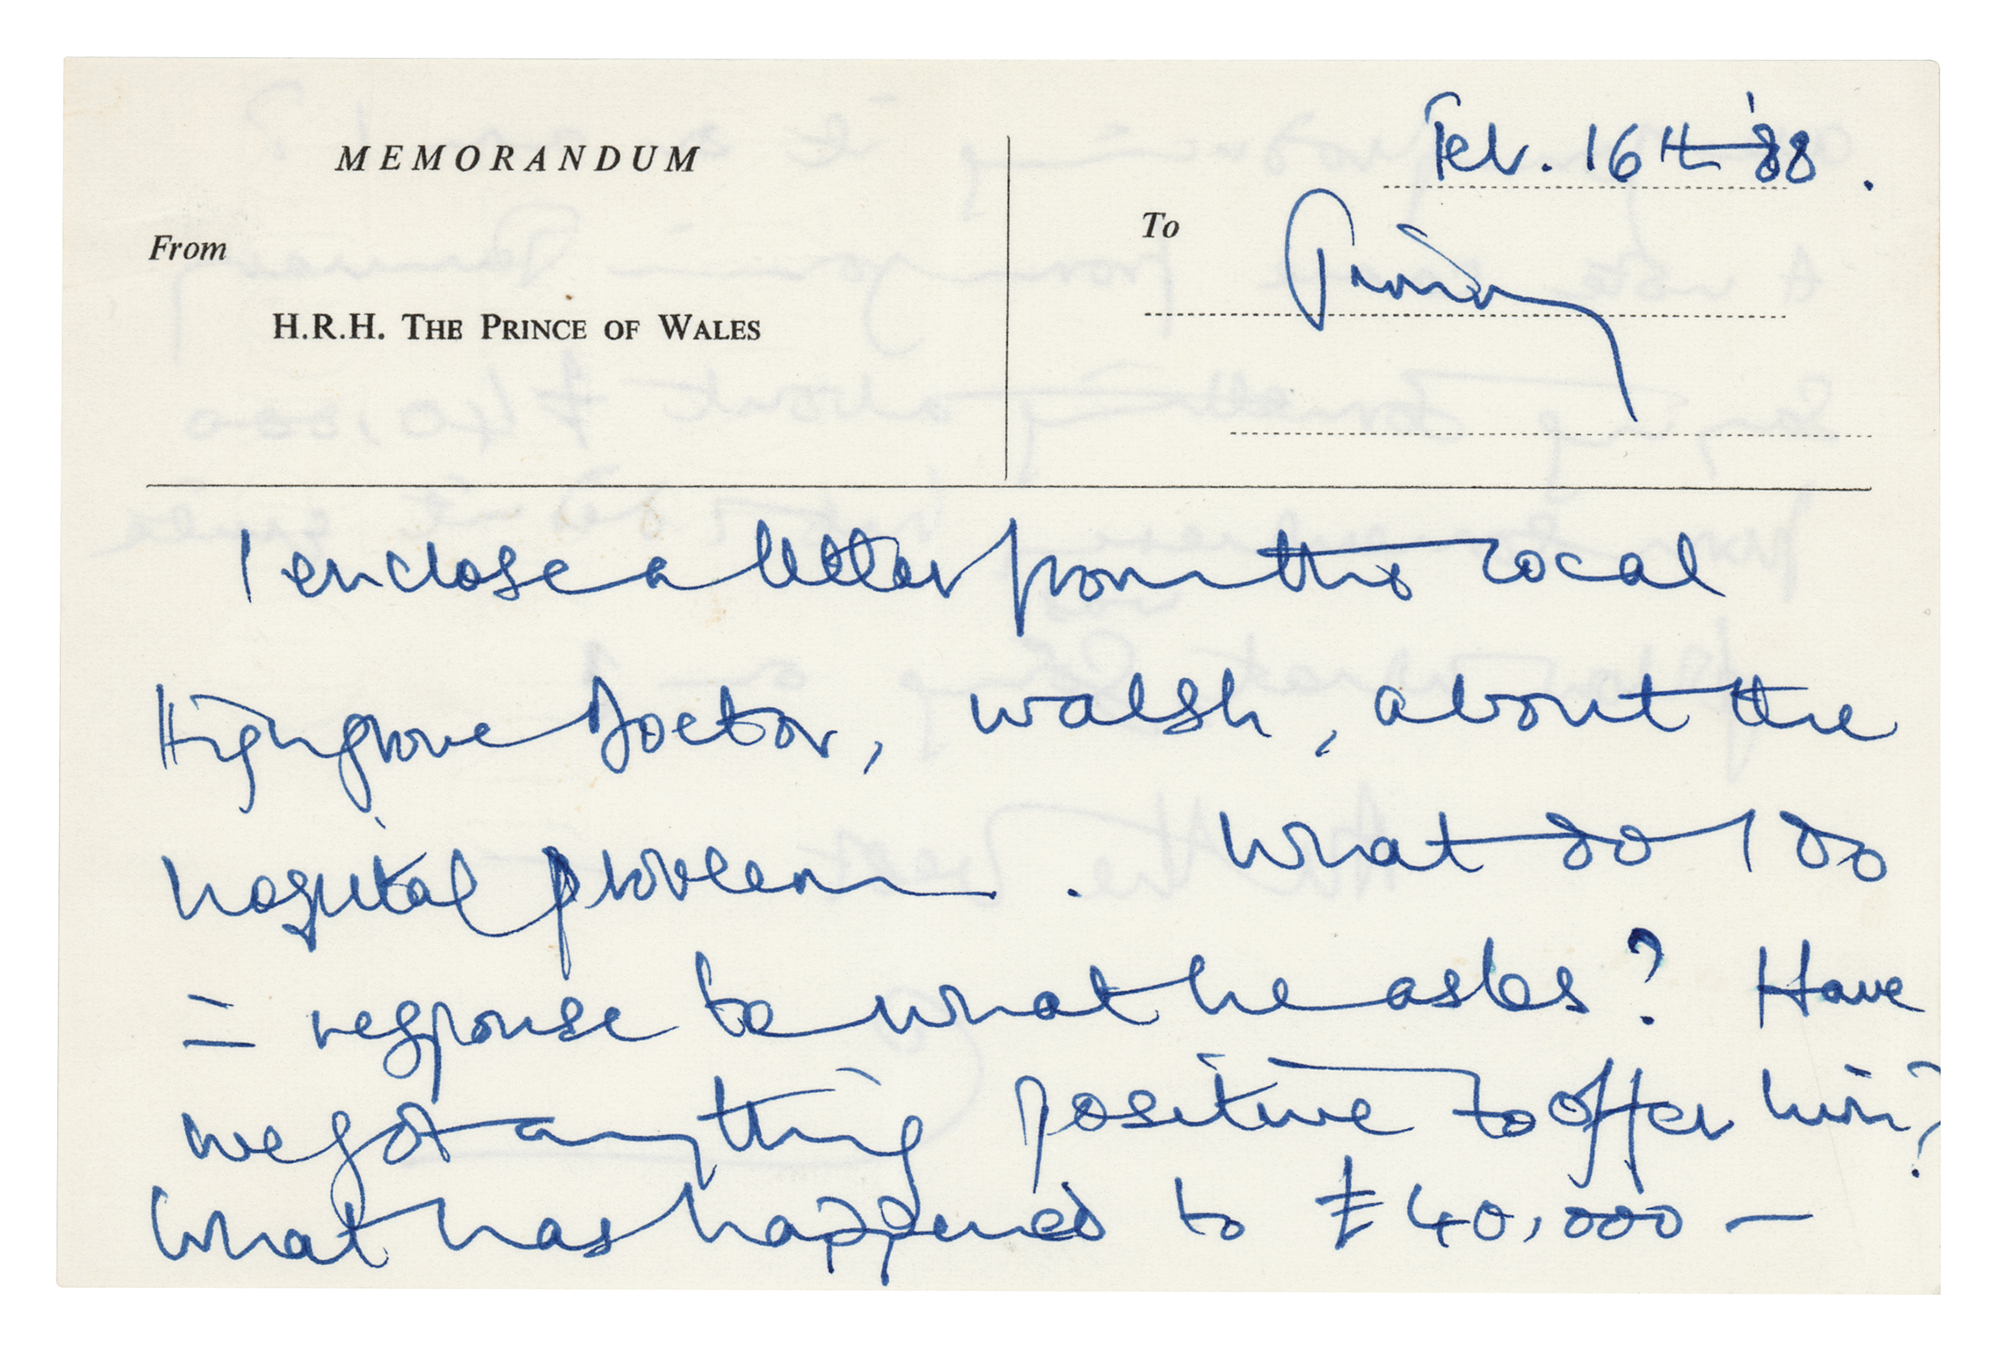 MEMORANDUM
From
H.R.H. THE PRINCE OF WALES
Feb. 16th '88.
To
I enclose a letter from the local
Highgrove Doctor, Walsh, about the
hospital problem. What do I do
in response to what he asks? Have
we got anything positive to offer him?
What has happened to £40,000 —